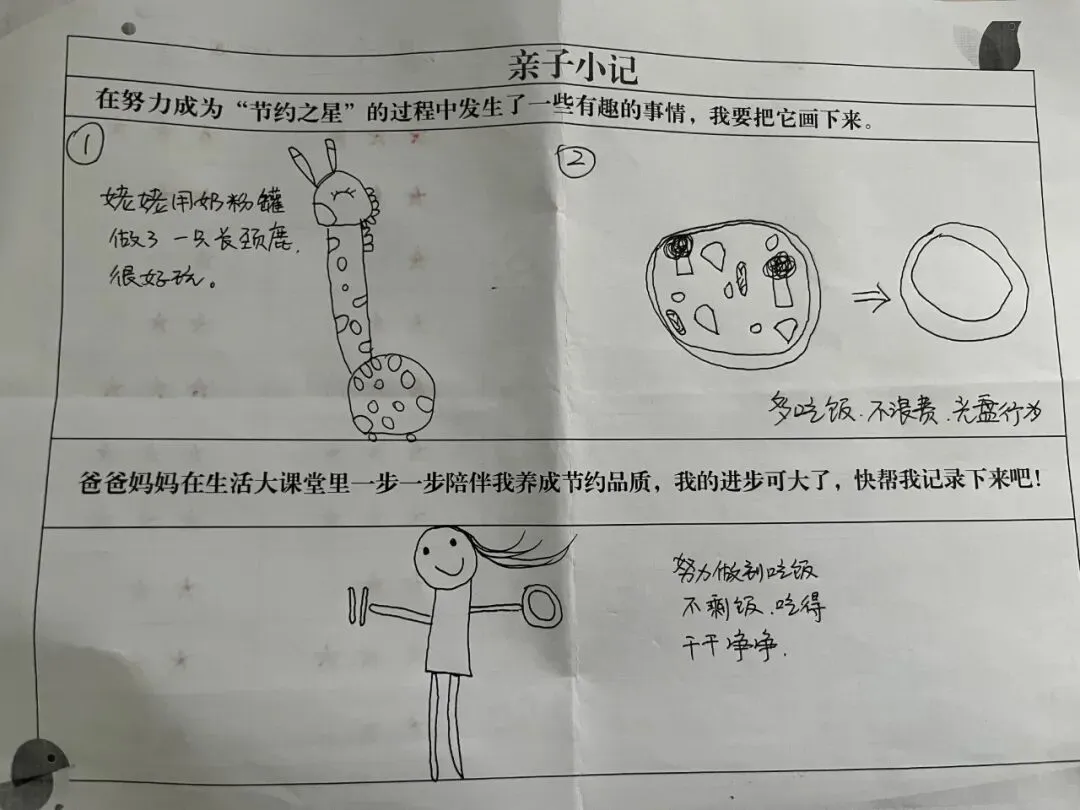 亲子小记
在努力成为“节约之星”的过程中发生了一些有趣的事情，我要把它画下来。
①
姥姥用奶粉罐
做了一只长颈鹿，
很好玩。
②
多吃饭.不浪费.光盘行为
爸爸妈妈在生活大课堂里一步一步陪伴我养成节约品质，我的进步可大了，快帮我记录下来吧！
努力做到吃饭
不剩饭.吃得
干干净净.